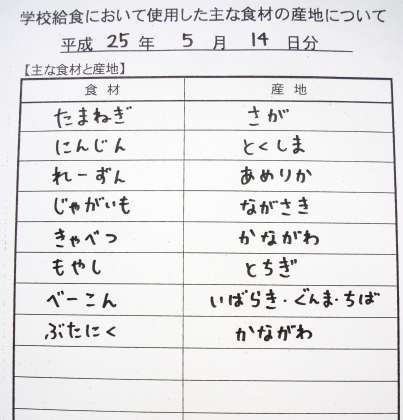 学校給食において使用した主な食材の産地について
平成 25 年 5 月 14 日分
【主な食材と産地】
食材 産地
たまねぎ さが
にんじん とくしま
れーずん あめりか
じゃがいも ながさき
きゃべつ かながわ
もやし とちぎ
べーこん いばらき・ぐんま・ちば
ぶたにく かながわ